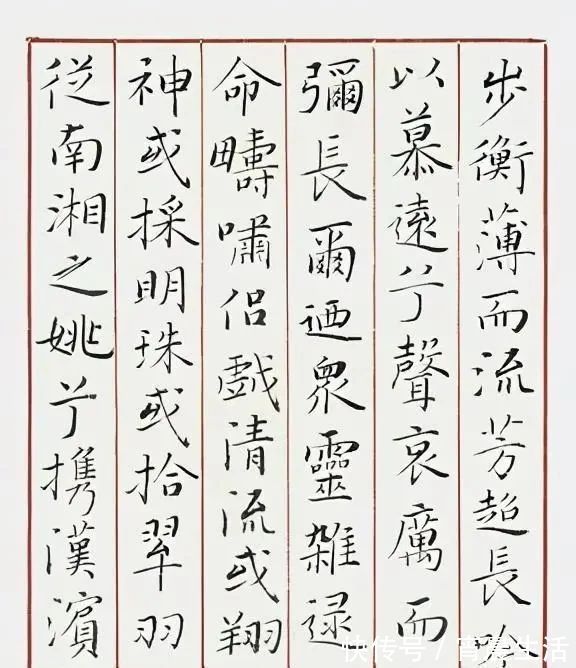 步衡薄而流芳超長
以慕遠兮聲哀厲而
彌長爾迺衆靈雜逯
命疇嘯侶戲清流或翔
神或採明珠或拾翠羽
從南湘之姚兮携漢濱
快传号 / 生活